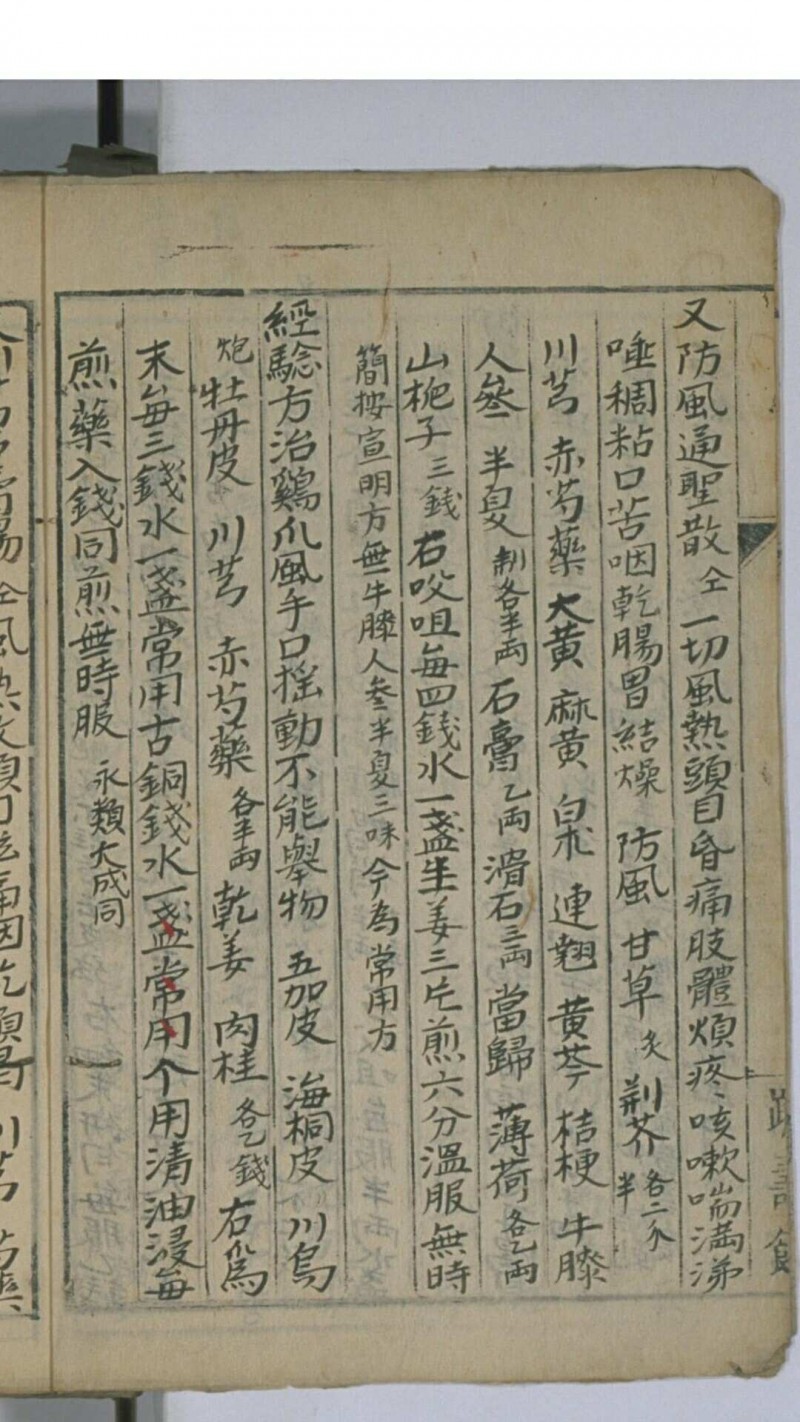 又防風通聖散 仝 一切風熱頭目昏痛肢體煩疼咳嗽喘満涕
唾稠粘口苦咽乾腸胃結燥 防風 甘草 炙 荆芥 各二分半
川芎 赤芍藥 大黄 麻黄 白朮 連翹 黄芩 桔梗 牛膝
人參 半夏 制各半両 石膏 乙両 滑石 三両 當歸 薄荷 各乙両
山栀子 三錢 右㕮咀每四錢水一盞生姜三片煎六分温服無時
簡按宣明方無牛膝人參半夏三味今為常用方
經驗方治鷄爪風手口揺動不能舉物 五加皮 海桐皮 川烏
炮 牡丹皮 川芎 赤芍藥 各半両 乾姜 肉桂 各乙錢 右爲
末每三錢水一盞常用古銅錢水一盞常用个用清油浸每
煎藥入錢同煎無時服 永類大成同